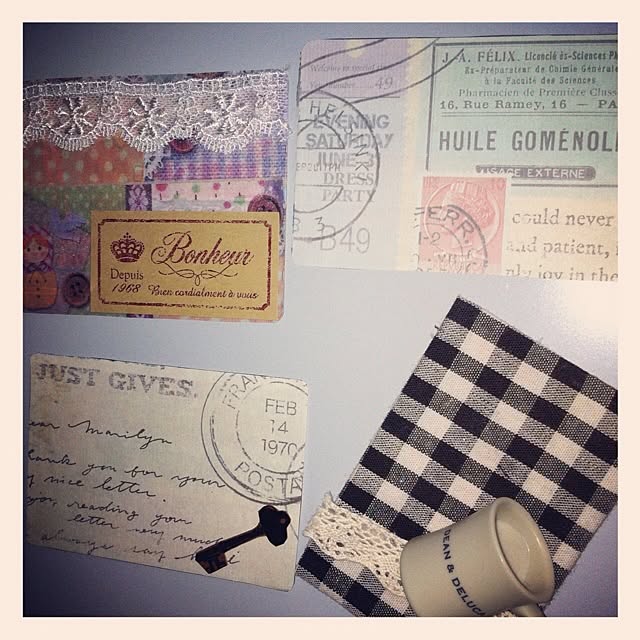 Bonheur
Depuis
1968 Bien cordialment à vous
Welcome to
49
EVENING
SATURDAY
JUNE 3
DRESS
PARTY
B49
J. A. FÉLIX. Licencié ès-Sciences
Ex-Préparateur de Chimie Générale
à la Faculté des Sciences
Pharmacien de Première Class
16, Rue Ramey, 16 — PA
HUILE GOMÉNOL
USAGE EXTERNE
could never
and patient,
ply joy in the
JUST GIVES.
ear Marilyn
hank you for your
nice letter.
reading your
letter very much
always say
FRAN
FEB
14
1970
POSTA
DEAN & DELUCA